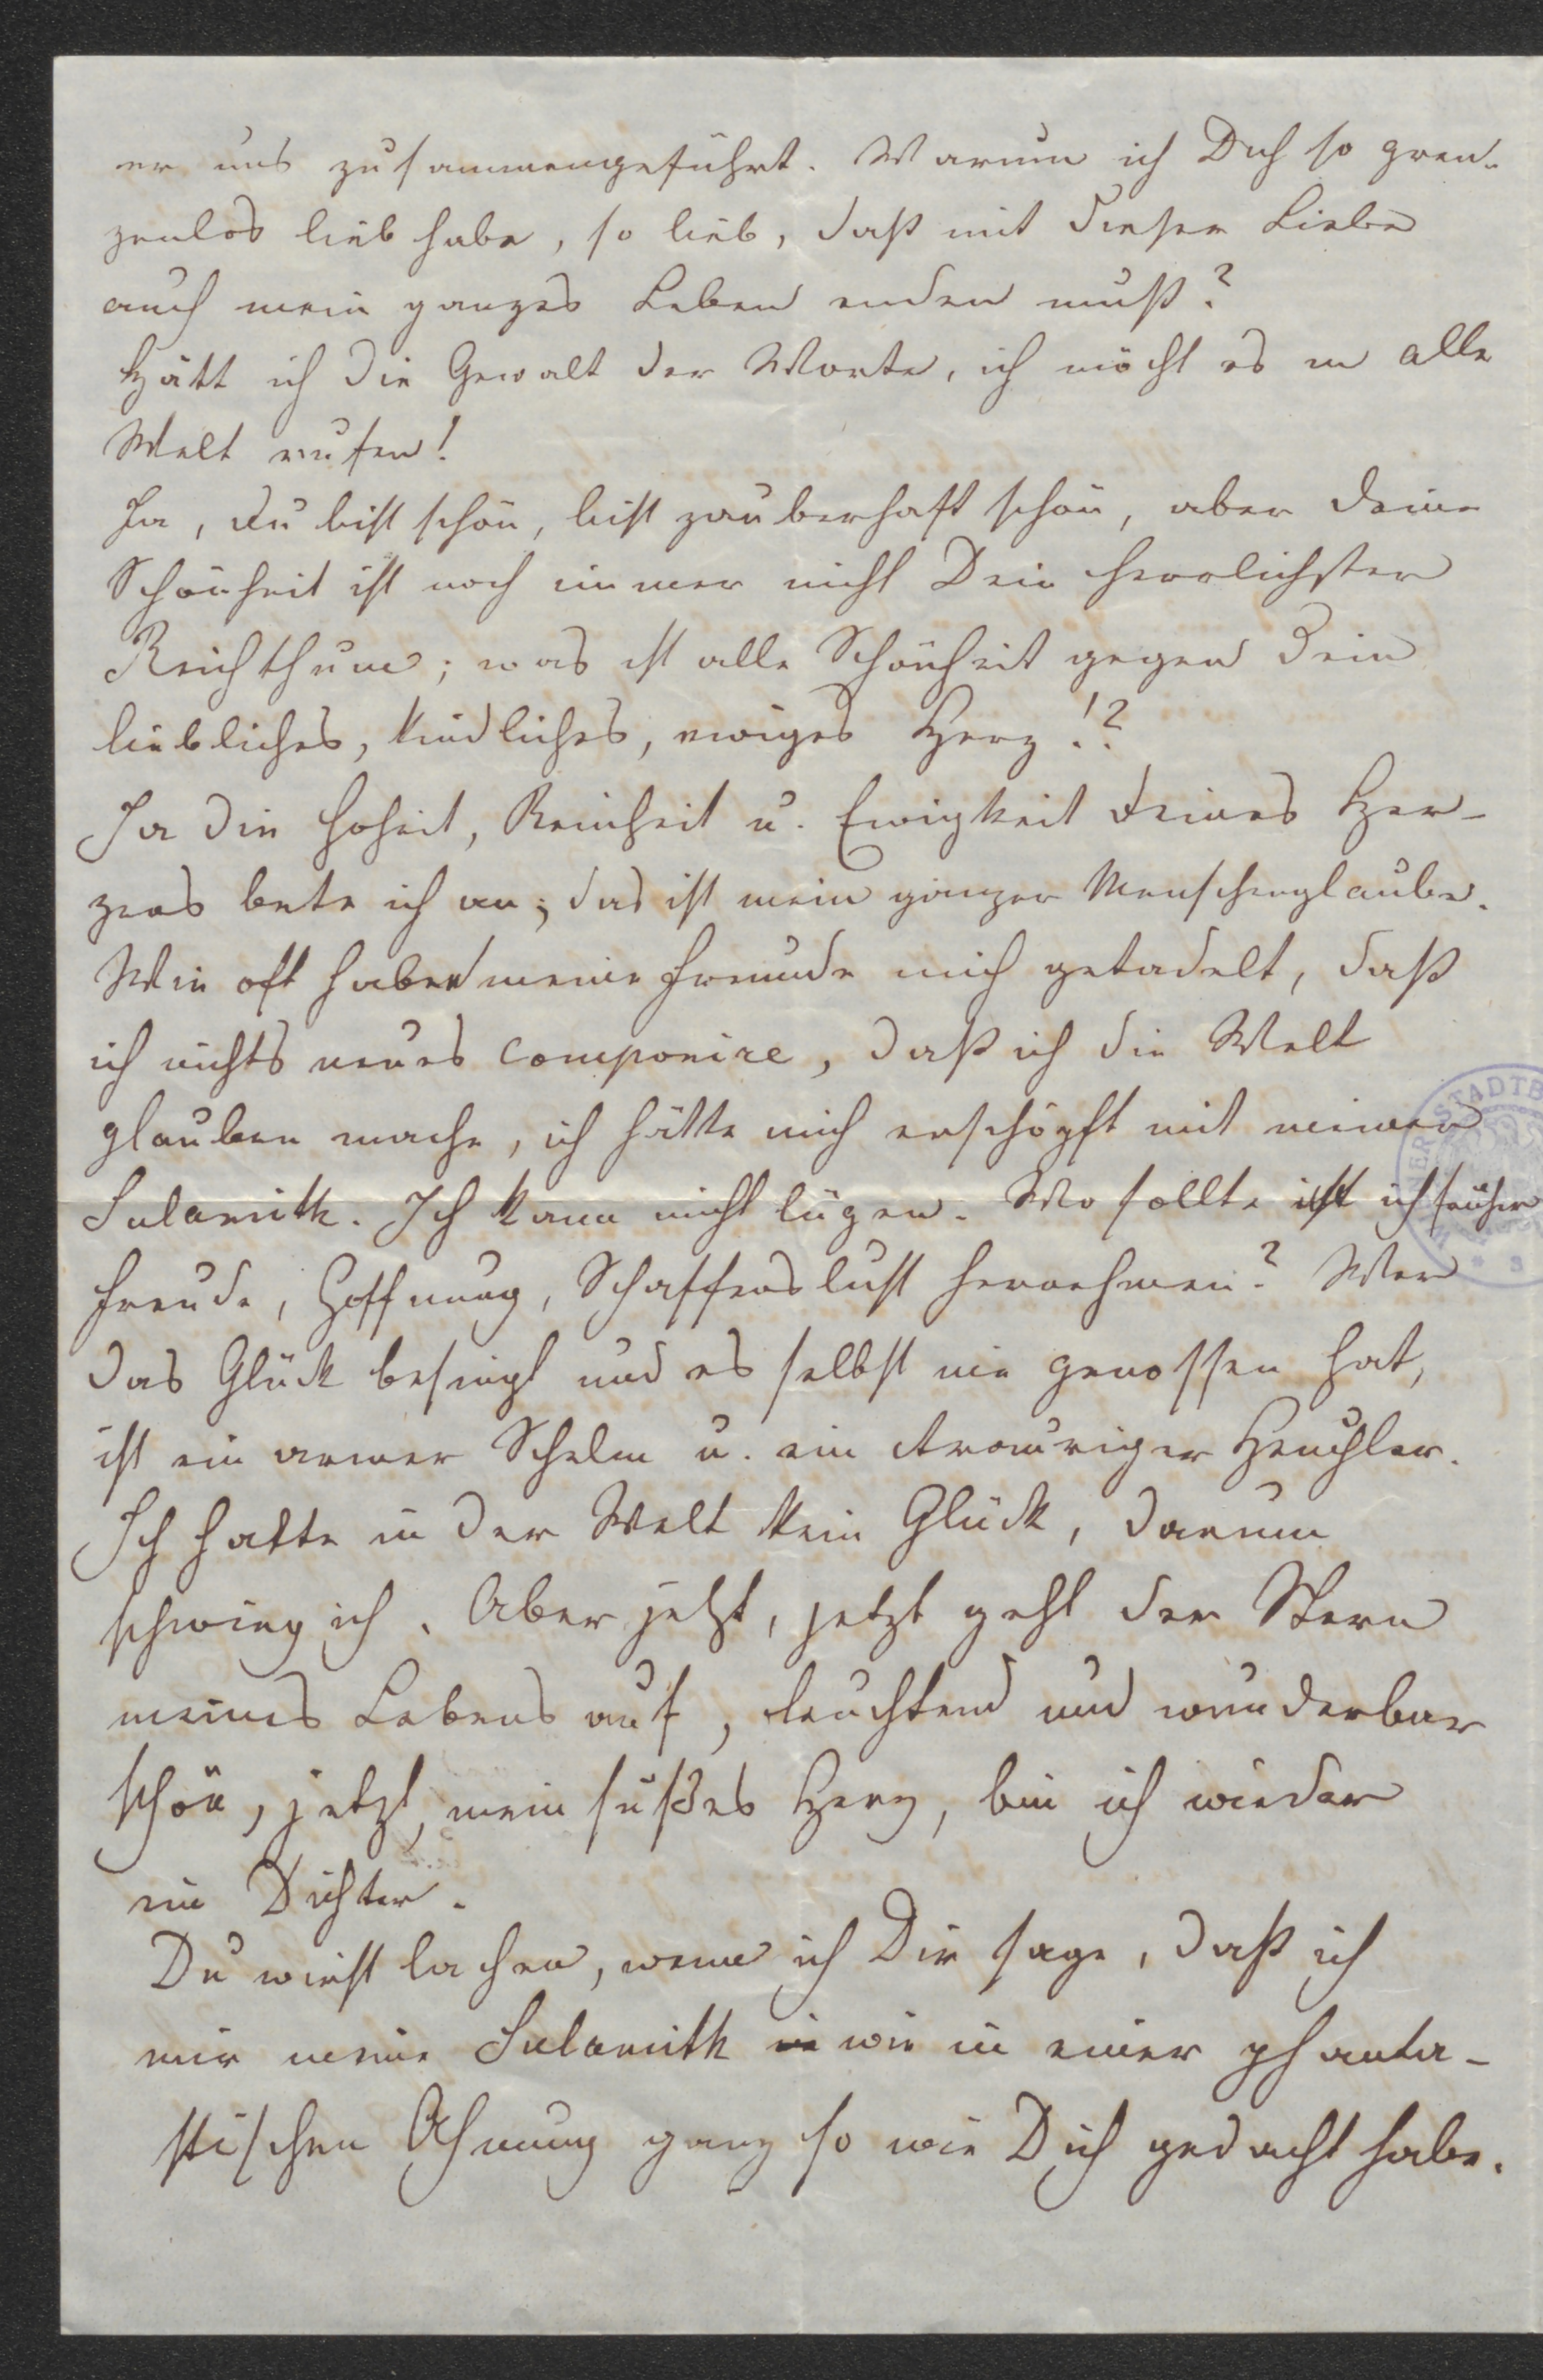 er uns zusammengeführt. Warum ich Dich so gren-
zenlos lieb habe, so lieb, daß mit dieser Liebe
auch mein ganzes Leben enden muß?
Hätt ich die Gewalt der Worte, ich möcht es in alle
Welt rufen!
Ja, du bist schön, bist zauberhaft schön, aber deine
Schönheit ist noch immer nicht Dein herrlichster
Reichthum; was ist alle Schönheit gegen Dein
liebliches, kindliches, ewiges Herz!?
Ja die Hoheit, Reinheit u. Ewigkeit deines Her-
zens bete ich an; das ist mein ganzer Menschenglaube.
Wie oft haben meine Freunde mich getadelt, daß
ich nichts neues componire, daß ich die Welt
glauben mache, ich hätte mich erschöpft mit meiner
Sulamith. Ich kann nicht lügen. Wo sollte ich früher
Freude, Hoffnung, Schaffenslust hernehmen? Wer
das Glück besingt und es selbst nie genossen hat,
ist ein armer Schelm u. ein trauriger Heuchler.
Ich hatte in der Welt kein Glück, darum
schwieg ich. Aber jetzt, jetzt geht der Stern
meines Lebens auf, leuchtend und wunderbar
schön, jetzt, mein süßes Herz, bin ich wieder
ein Dichter.
Du wirst lachen, wenn ich Dir sage, daß ich
mir meine Sulamith wie in einer phanta-
stischen Ahnung ganz so wie Dich gedacht habe.
STADTB